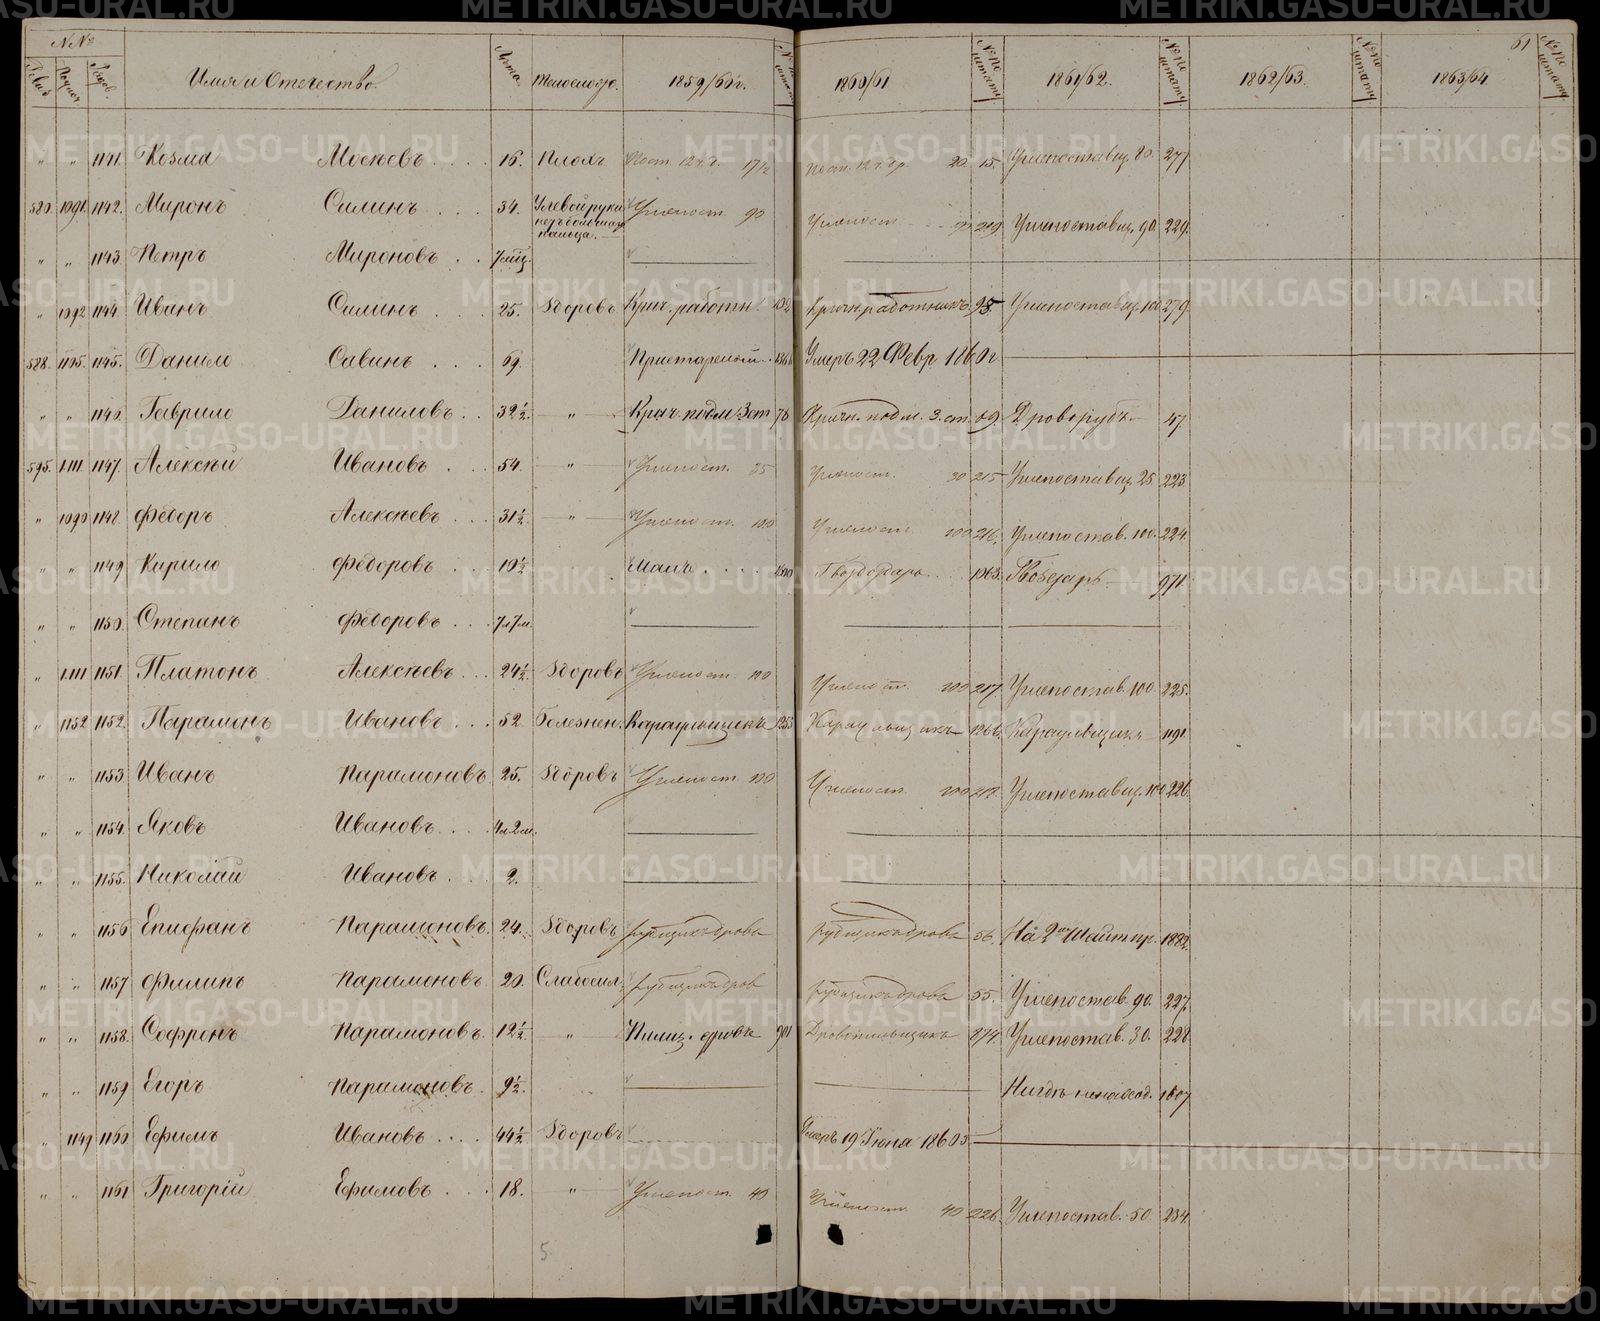 №№ Имя и Отчество. Лѣта. Телослож. 1859/60 г. 1860/61 1861/62. 1862/63. 1863/64 61
1141 Козма Мосѣевъ 16. Плохъ 17½ 20 15. Углепоставщ. 80. 277
580. 1091. 1142. Миронъ Силинъ 34. У левой руки нѣтъ большаго пальца. Углепост. 90 Углепост. 90 219 Углепоставщ. 90. 229.
1143 Петръ Мироновъ
1092 1144. Иванъ Силинъ 25. Здоровъ Крич. работн. Кричн. работникъ. 95. Углепоставщ. 100 279.
588. 1145. Данило Савинъ 69. Престарелый Умеръ 22 Февр 1860 г
1146. Гаврило Даниловъ 32½. " Крич. подм. 3 ст 78 Кричн. подм. 3. ст. 69. Дроворубъ 47
595. 1111. 1147. Алексѣй Ивановъ 54. " Углепост. 25 Углепост. 30 215 Углепоставщ. 25. 223.
1090 1148. Федоръ Алексѣевъ 31½. " Углепост. 100 Углепост. 100 216. Углепостав. 100. 224.
1149 Кирило Федоровъ 10½ Гвоздарь 971
1150. Степанъ Федоровъ 7л7м.
1111 1151. Платонъ Алексѣевъ 24½. Здоровъ Углепост. 100 Углепост. 100 217. Углепостав. 100. 225.
1152 1152. Парамонъ Ивановъ 52 Болезнен. Караульщикъ 1255 Караульщикъ 1266. Караульщикъ 1191
1153 Иванъ Парамоновъ 25. Здоровъ Углепост. 100 Углепост. 100 Углепоставщ. 100 226.
1154. Яковъ Ивановъ 4л2м.
1155. Николай Ивановъ 2.
1156 Епифанъ Парамоновъ. 24. Здоровъ Рубщикъ дровъ Рубщикъ дровъ 56. На 2 Шайт пр. 1882.
1157 Филипъ Парамоновъ. 20. Слабосил. Рубщикъ дров Рубщикъ дровъ 55. Углепостав. 90. 227.
1158. Софронъ Парамоновъ. 12½. " Пилщ. дровъ 901 Дровопильщикъ 874. Углепостав. 30. 228
1159 Егоръ Парамоновъ. 9½. 1607
1149 1160. Ефимъ Ивановъ 44½. Здоровъ Умеръ 19 Iюня 1860
1161 Григорiй Ефимовъ 18. " Углепост. 40 Углепост. 40 226. Углепостав. 50. 234.
5.
METRIKI.GASO-URAL.RU